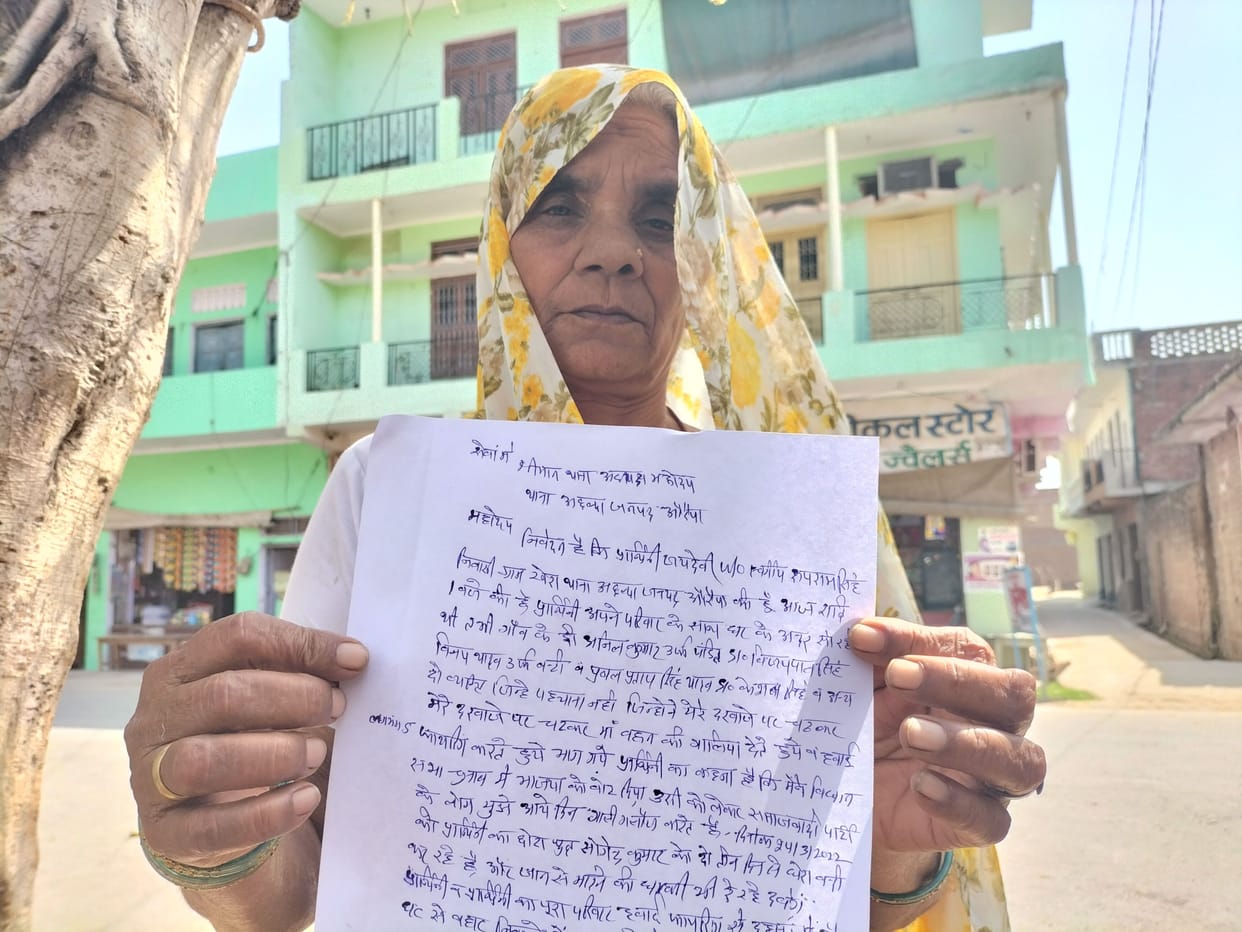 ेकल स्टोर
ज्वैलर्स
सेवा में श्रीमान थाना अध्यक्ष महोदय
थाना अछल्दा जनपद औरैया
महोदय
निवेदन है कि प्रार्थिनी जयदेवी W/O स्वर्गीय रूपराम सिंह
निवासी ग्राम थाना अछल्दा जनपद औरैया की है आज रात्रि
1 बजे की है प्रार्थिनी अपने परिवार के साथ घर के अन्दर सो रहे
थी तभी गाँव के ही अनिल कुमार उर्फ पंडित S/o विजयपाल सिंह
विनय यादव उर्फ व प्रबल प्रताप सिंह S/o सिंह व अन्य
दो व्यक्ति जिन्हे पहचाना नहीं जिन्होने मेरे दरवाजे पर चढकार
मेरे दरवाजे पर चढकार माँ बहन की गालियां देते हुये व हवाई
फायरिंग करते हुये भाग गये प्रार्थिनी का कहना है कि मैंने विधान
सभा चुनाव में भाजपा को वोट दिया उसी को लेकर समाजवादी पार्टी
के लोग मुझे आये दिन गाली गलौज करते है दिनांक 24/3/2022
को प्रार्थिनी का छोटा पुत्र कुमार को दो तीन दिन से
कर रहे है, और जान से मारने की धमकी भी दे रहे
प्रार्थिनी व प्रार्थिनी का पूरा परिवार हवाई फायरिंग से
घर से बाहर